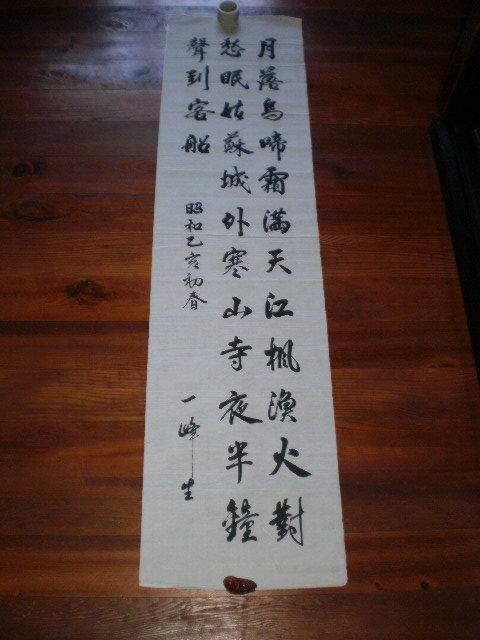 月落烏啼霜滿天江楓漁火對
愁眠姑蘇城外寒山寺夜半鐘
聲到客船
昭和乙亥初春
一峰生